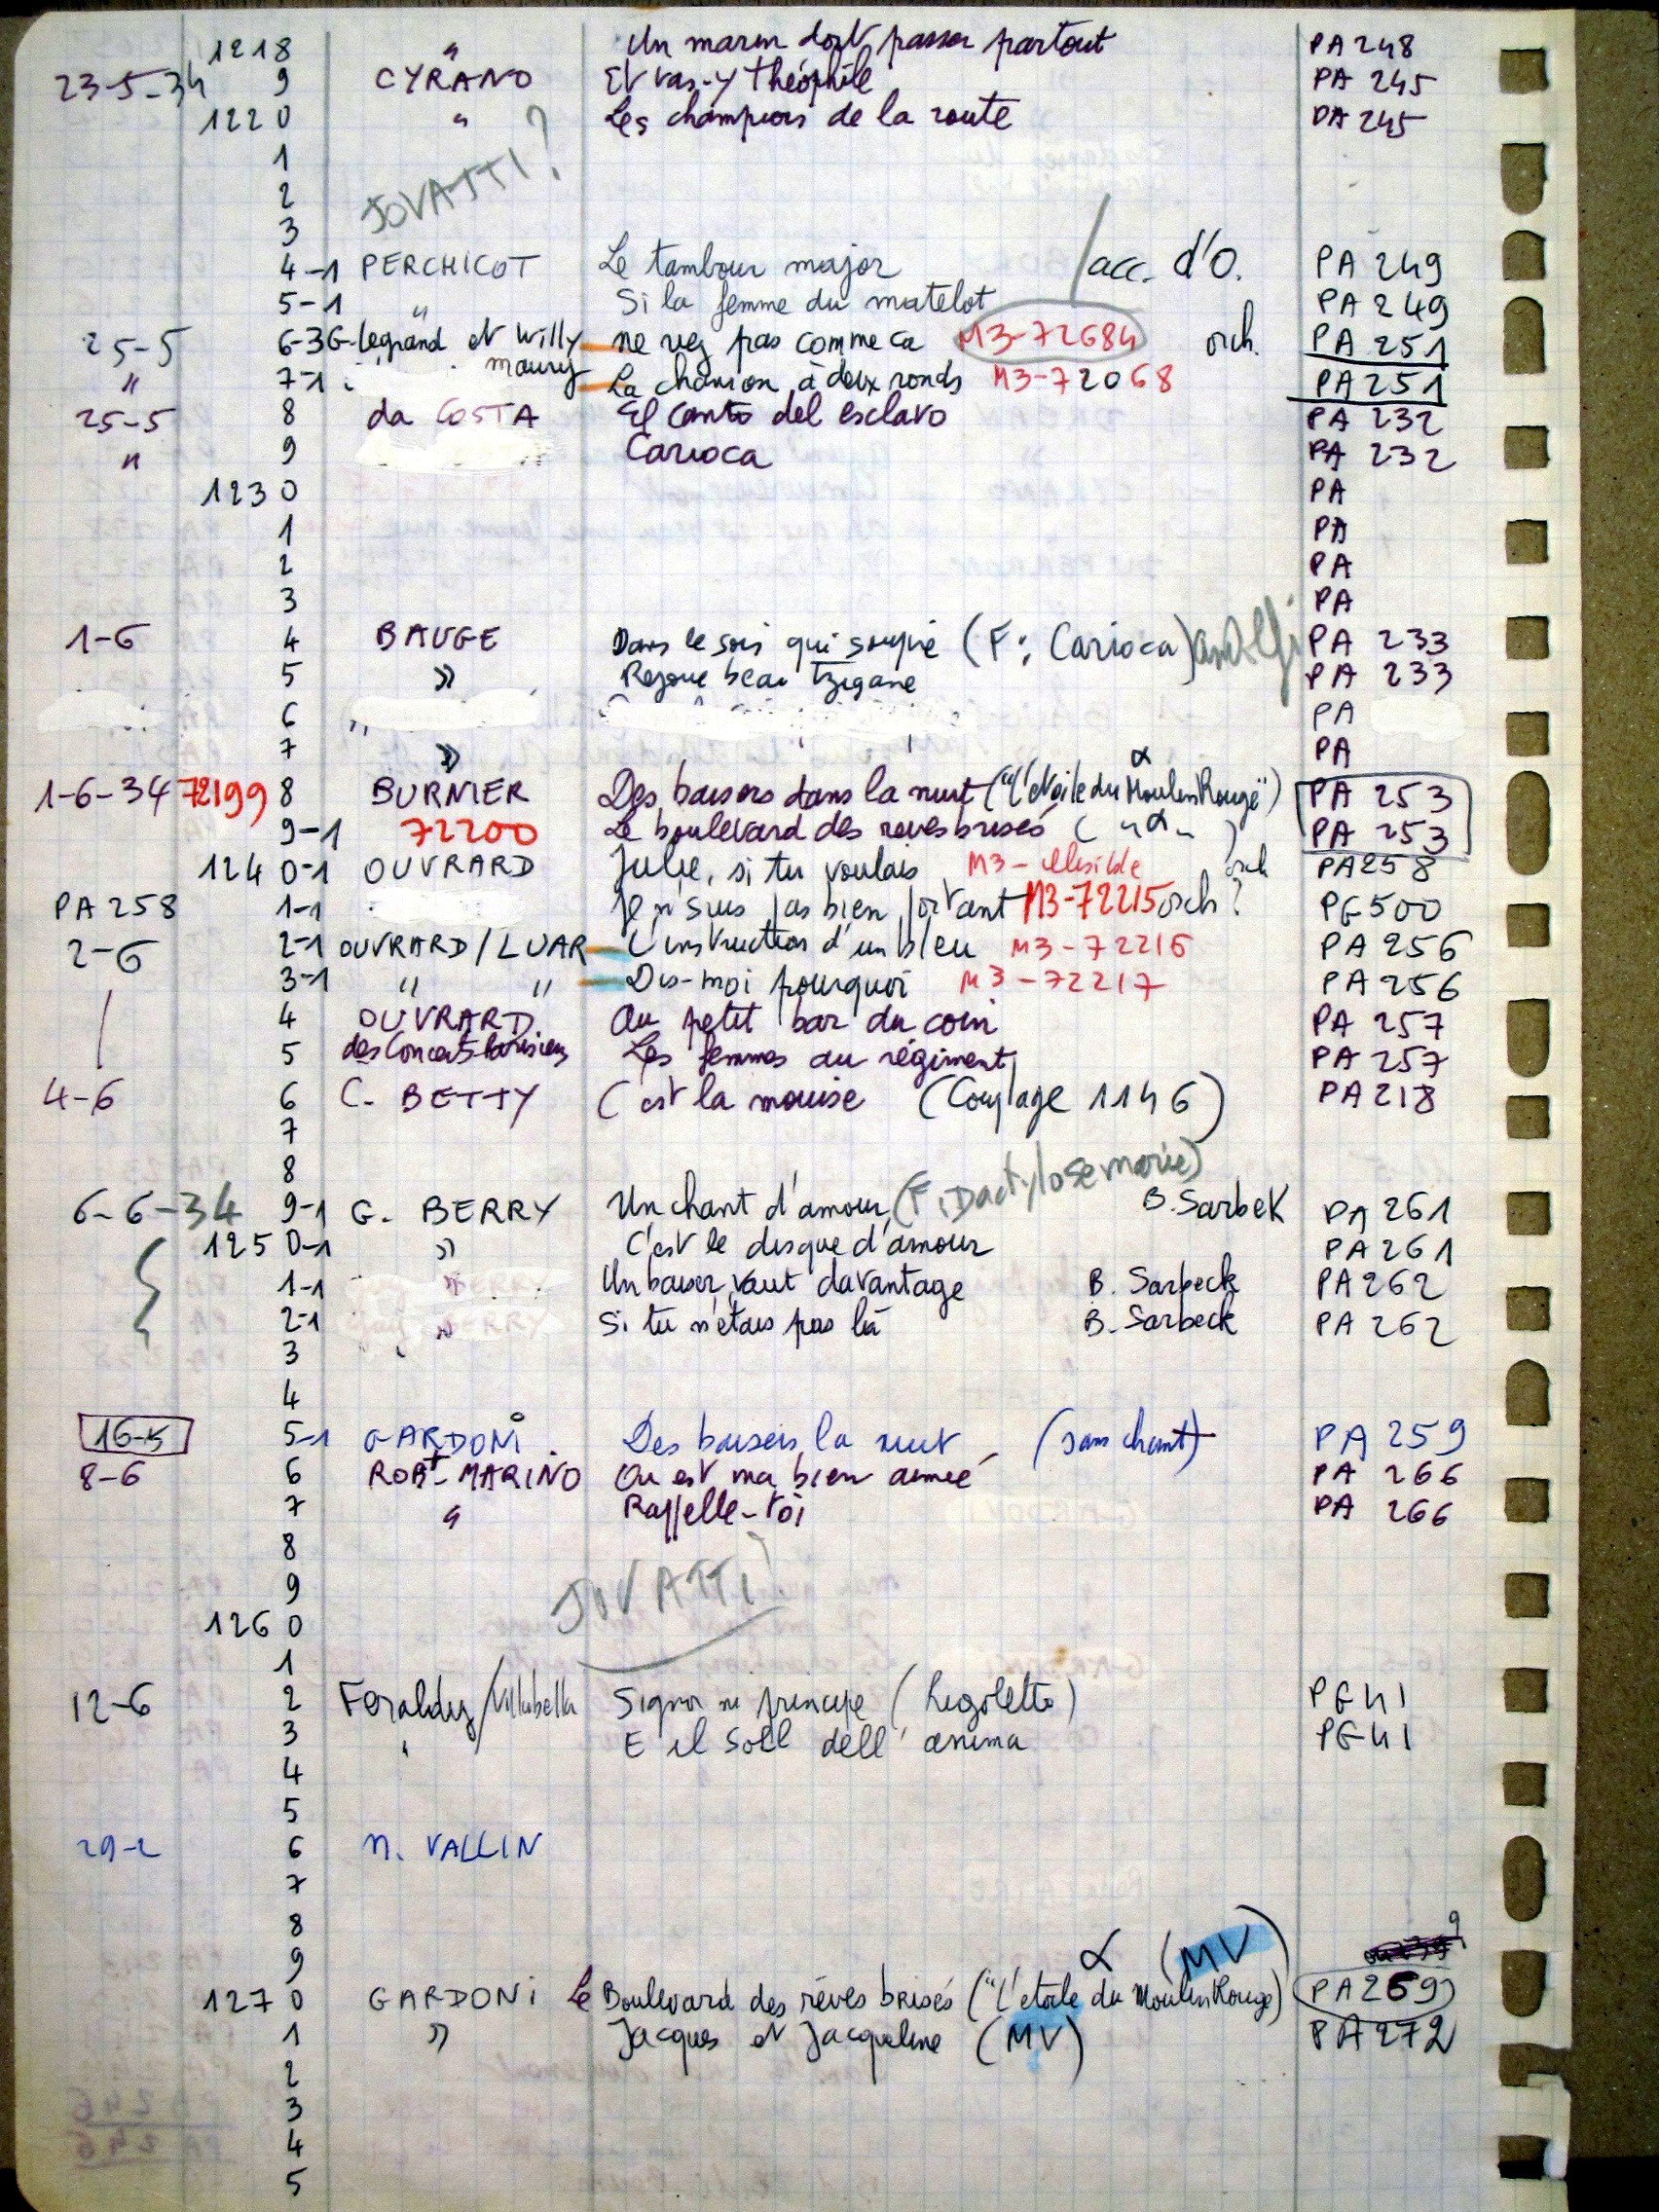 1218 " Un marin doit passer partout PA 248
23-5-34 9 CYRANO Et vas-y Théophile PA 245
1220 " Les champions de la route PA 245
1
2 JOVATTI?
3
4-1 PERCHICOT Le tambour major /acc. d'O. PA 249
5-1 " Si la femme du matelot PA 249
25-5 6-3 G. Legrand et Willy ne riez pas comme ca M3-72684 orch. PA 251
" 7-1 maury La chanson à deux ronds M3-72068 PA 251
25-5 8 da COSTA El canto del esclavo PA 232
" 9 Carioca PA 232
1230 PA
1 PA
2 PA
3 PA
1-6 4 BAUGE Dans le soir qui soupire (F: Carioca) PA 233
5 » Rejoue beau Tzigane PA 233
6 PA
7 » PA
1-6-34 72199 8 BURNIER Des baisers dans la nuit ("L'étoile du Moulin Rouge") α PA 253
9-1 72200 Le boulevard des reves brisés ( " α " ) PA 253
1240-1 OUVRARD Julie, si tu voulais M3 - illisible orch PA258
PA 258 1-1 Je n'suis pas bien portant M3-72215 orch? PG500
2-6 2-1 OUVRARD/LUAR L'instruction d'un bleu M3-72216 PA 256
3-1 " " Dis-moi pourquoi M3-72217 PA 256
4 OUVRARD Au petit bar du coin PA 257
5 des Concerts Parisiens Les femmes au régiment PA 257
4-6 6 C. BETTY C'est la mouise (Couplage 1146) PA218
7
8
6-6-34 9-1 G. BERRY Un chant d'amour (F. Dactylo se marie) B. Sarbek PA 261
1250-1 » C'est le disque d'amour PA 261
1-1 » Un baiser vaut davantage B. Sarbeck PA262
2-1 » Si tu n'étais pas là B. Sarbeck PA 262
3
4
16-5 5-1 GARDONI Des baisers la nuit (sans chant) PA 259
8-6 6 ROBt MARINO Ou est ma bien aimée PA 266
7 " Rappelle-toi PA 266
8
9 JOVATTI
1260
1
12-6 2 Feraldy/Villabella Signor ne principe (Rigoletto) PG41
3 E il soll dell' anima PG41
4
5
29-2 6 N. VALLIN
7
8
9 α (MV) 9
1270 GARDONI Le Boulevard des rêves brisés ("L'etoile du Moulin Rouge) PA269
1 » Jacques et Jacqueline (MV) PA272
2
3
4
5